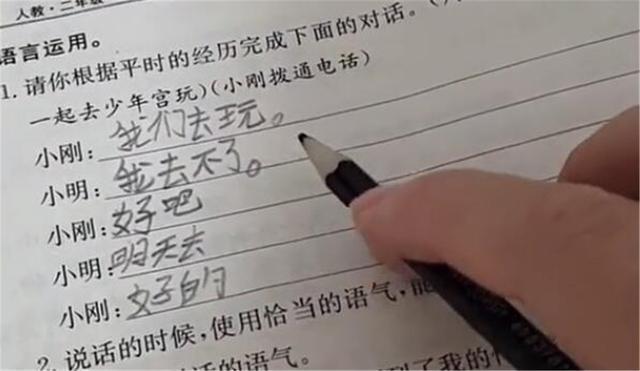 人教·二年级
语言运用。
1.请你根据平时的经历完成下面的对话。
一起去少年宫玩)(小刚拨通电话)
小刚:我们去玩。
小明:我去不了。
小刚:好吧
小明:明天去
小刚:好的
2.说话的时候,使用恰当的语气,能
话的语气。
了我的